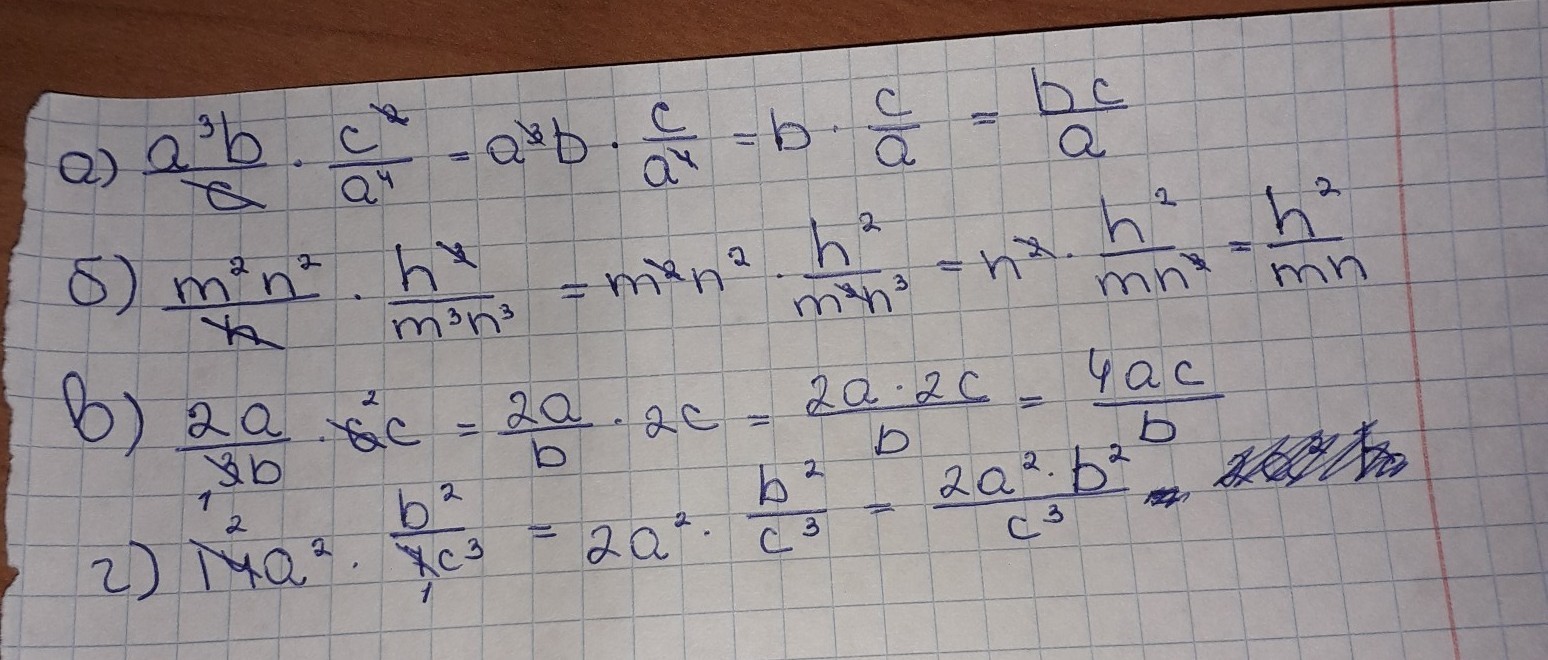 а) a³b/c · c²/a⁴ = a³b · c/a⁴ = b · c/a = bc/a
б) m²n²/h · h²/m³n³ = m²n² · h²/m³n³ = n² · h²/mn³ = h²/mn
в) 2a/3b · 6c = 2a/b · 2c = 2a·2c/b = 4ac/b
г) 14a² · b²/7c³ = 2a² · b²/c³ = 2a²·b²/c³